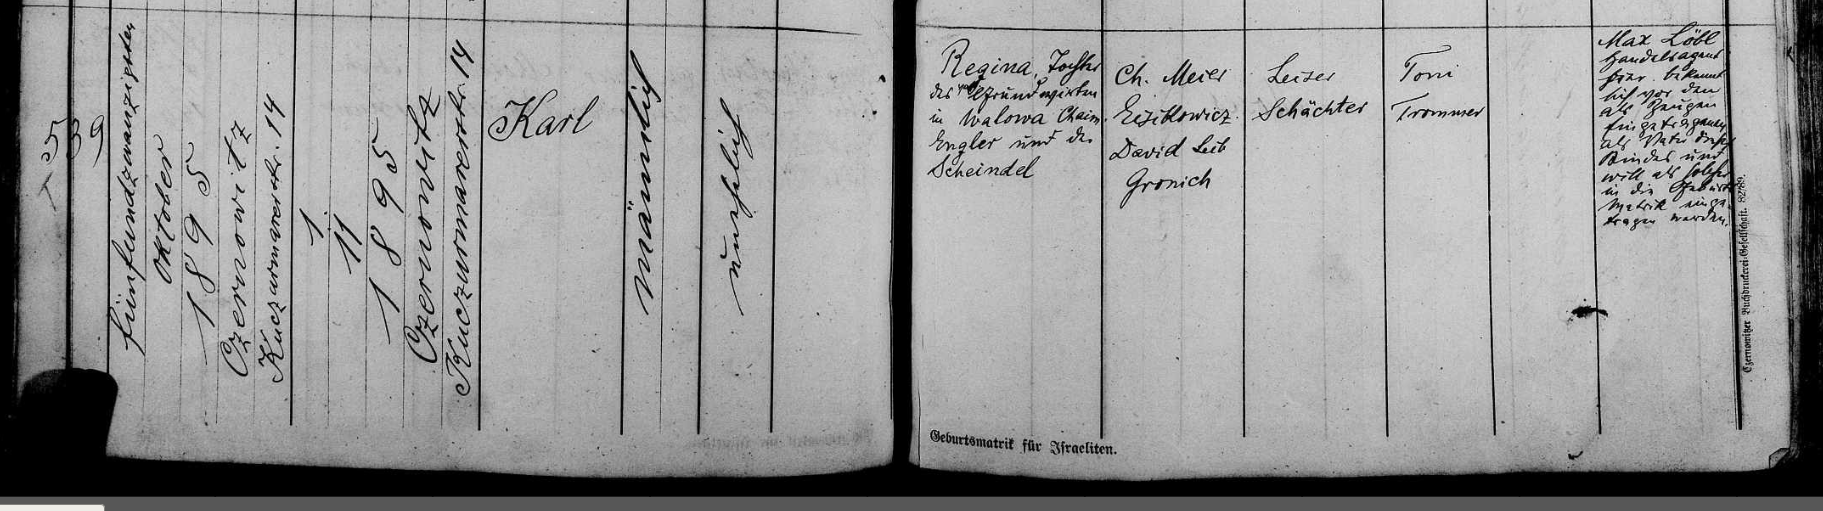 539
fünfundzwanzigsten
Oktober
1895
Czernowitz
Kuczurmarerstr. 14
1.
11
1895
Czernowitz
Kuczurmarerstr. 14
Karl
männlich
unehelich
Regina, Tochter
des Grundwirten
in Walowa Chaim
Engler und der
Scheindel
Ch. Meier
Eisikowicz
David Leib
Gronich
Leiser
Schächter
Toni
Trommer
Max Löbl
Handelsagent
hier bekannt
sich vor den
als Zeugen
Eingetragenen
als Vater dieses
Kindes und
will als solcher
in die Geburts
Matrik einge-
tragen werden.
Geburtsmatrik für Israeliten.
Czernowitzer Buchdruckerei-Gesellschaft. 82/89.